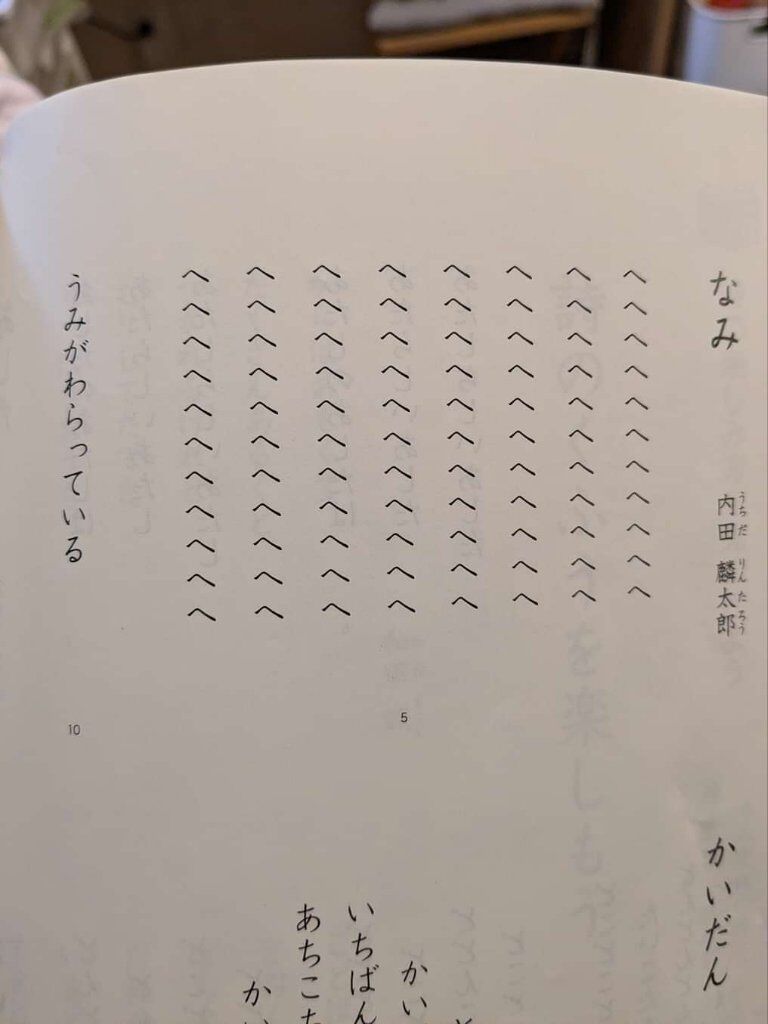 なみ
内田 麟太郎
うちだ りんたろう
へへへへへへへへへへへ
へへへへへへへへへへへ
へへへへへへへへへへへ
へへへへへへへへへへへ
へへへへへへへへへへへ
5
へへへへへへへへへへへ
へへへへへへへへへへへ
へへへへへへへへへへへ
うみがわらっている
10
かいだん
かい
いちばん
あちこ
か